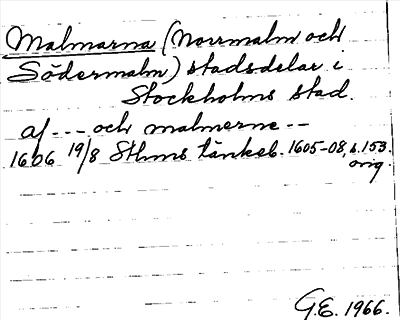 Malmarna (Norrmalm och
Södermalm) stadsdelar i
Stockholms stad.
af --- och malmerne --
1606 19/8 Sthms tänkeb. 1605-08, s. 153.
orig.
G.E. 1966.